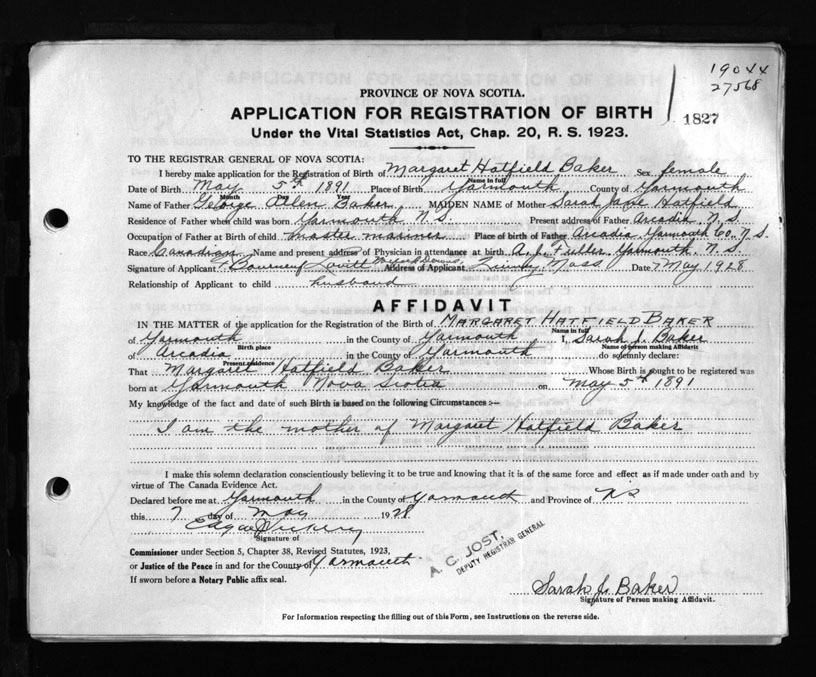 19044
27568
PROVINCE OF NOVA SCOTIA.
APPLICATION FOR REGISTRATION OF BIRTH
1827
Under the Vital Statistics Act, Chap. 20, R. S. 1923.
TO THE REGISTRAR GENERAL OF NOVA SCOTIA:
I hereby make application for the Registration of Birth of Margaret Hatfield Baker Sex female
Name in full
Date of Birth May 5th 1891 Place of Birth Yarmouth County of Yarmouth
Month Day Year
Name of Father George Baker MAIDEN NAME of Mother Sarah Jane Hatfield
Residence of Father when child was born Yarmouth N.S. Present address of Father Arcadia N.S.
Occupation of Father at Birth of child master mariner Place of birth of Father Arcadia Yarmouth Co. N.S.
Race Canadian Name and present address of Physician in attendance at birth A. J. Fuller Yarmouth N.S.
Signature of Applicant Bourneuf Lovitt Address of Applicant Quincy Mass. Date 7 May 1928
Relationship of Applicant to child husband
AFFIDAVIT
IN THE MATTER of the application for the Registration of the Birth of MARGARET HATFIELD BAKER
Name in full
of Yarmouth in the County of Yarmouth I, Sarah J. Baker
Birth place Name of person making Affidavit
of Arcadia in the County of Yarmouth do solemnly declare:
Present residence
That Margaret Hatfield Baker Whose Birth is sought to be registered was
born at Yarmouth Nova Scotia on May 5th 1891
My knowledge of the fact and date of such Birth is based on the following Circumstances :—
I am the mother of Margaret Hatfield Baker
I make this solemn declaration conscientiously believing it to be true and knowing that it is of the same force and effect as if made under oath and by
virtue of The Canada Evidence Act.
Declared before me at Yarmouth in the County of Yarmouth and Province of NS
this 7 day of May 1928
Edgar J Vickery
Signature of
Commissioner under Section 5, Chapter 38, Revised Statutes, 1923,
or Justice of the Peace in and for the County of Yarmouth
If sworn before a Notary Public affix seal.
A. C. JOST,
DEPUTY REGISTRAR GENERAL
Sarah J. Baker
Signature of Person making Affidavit.
For Information respecting the filling out of this Form, see Instructions on the reverse side.